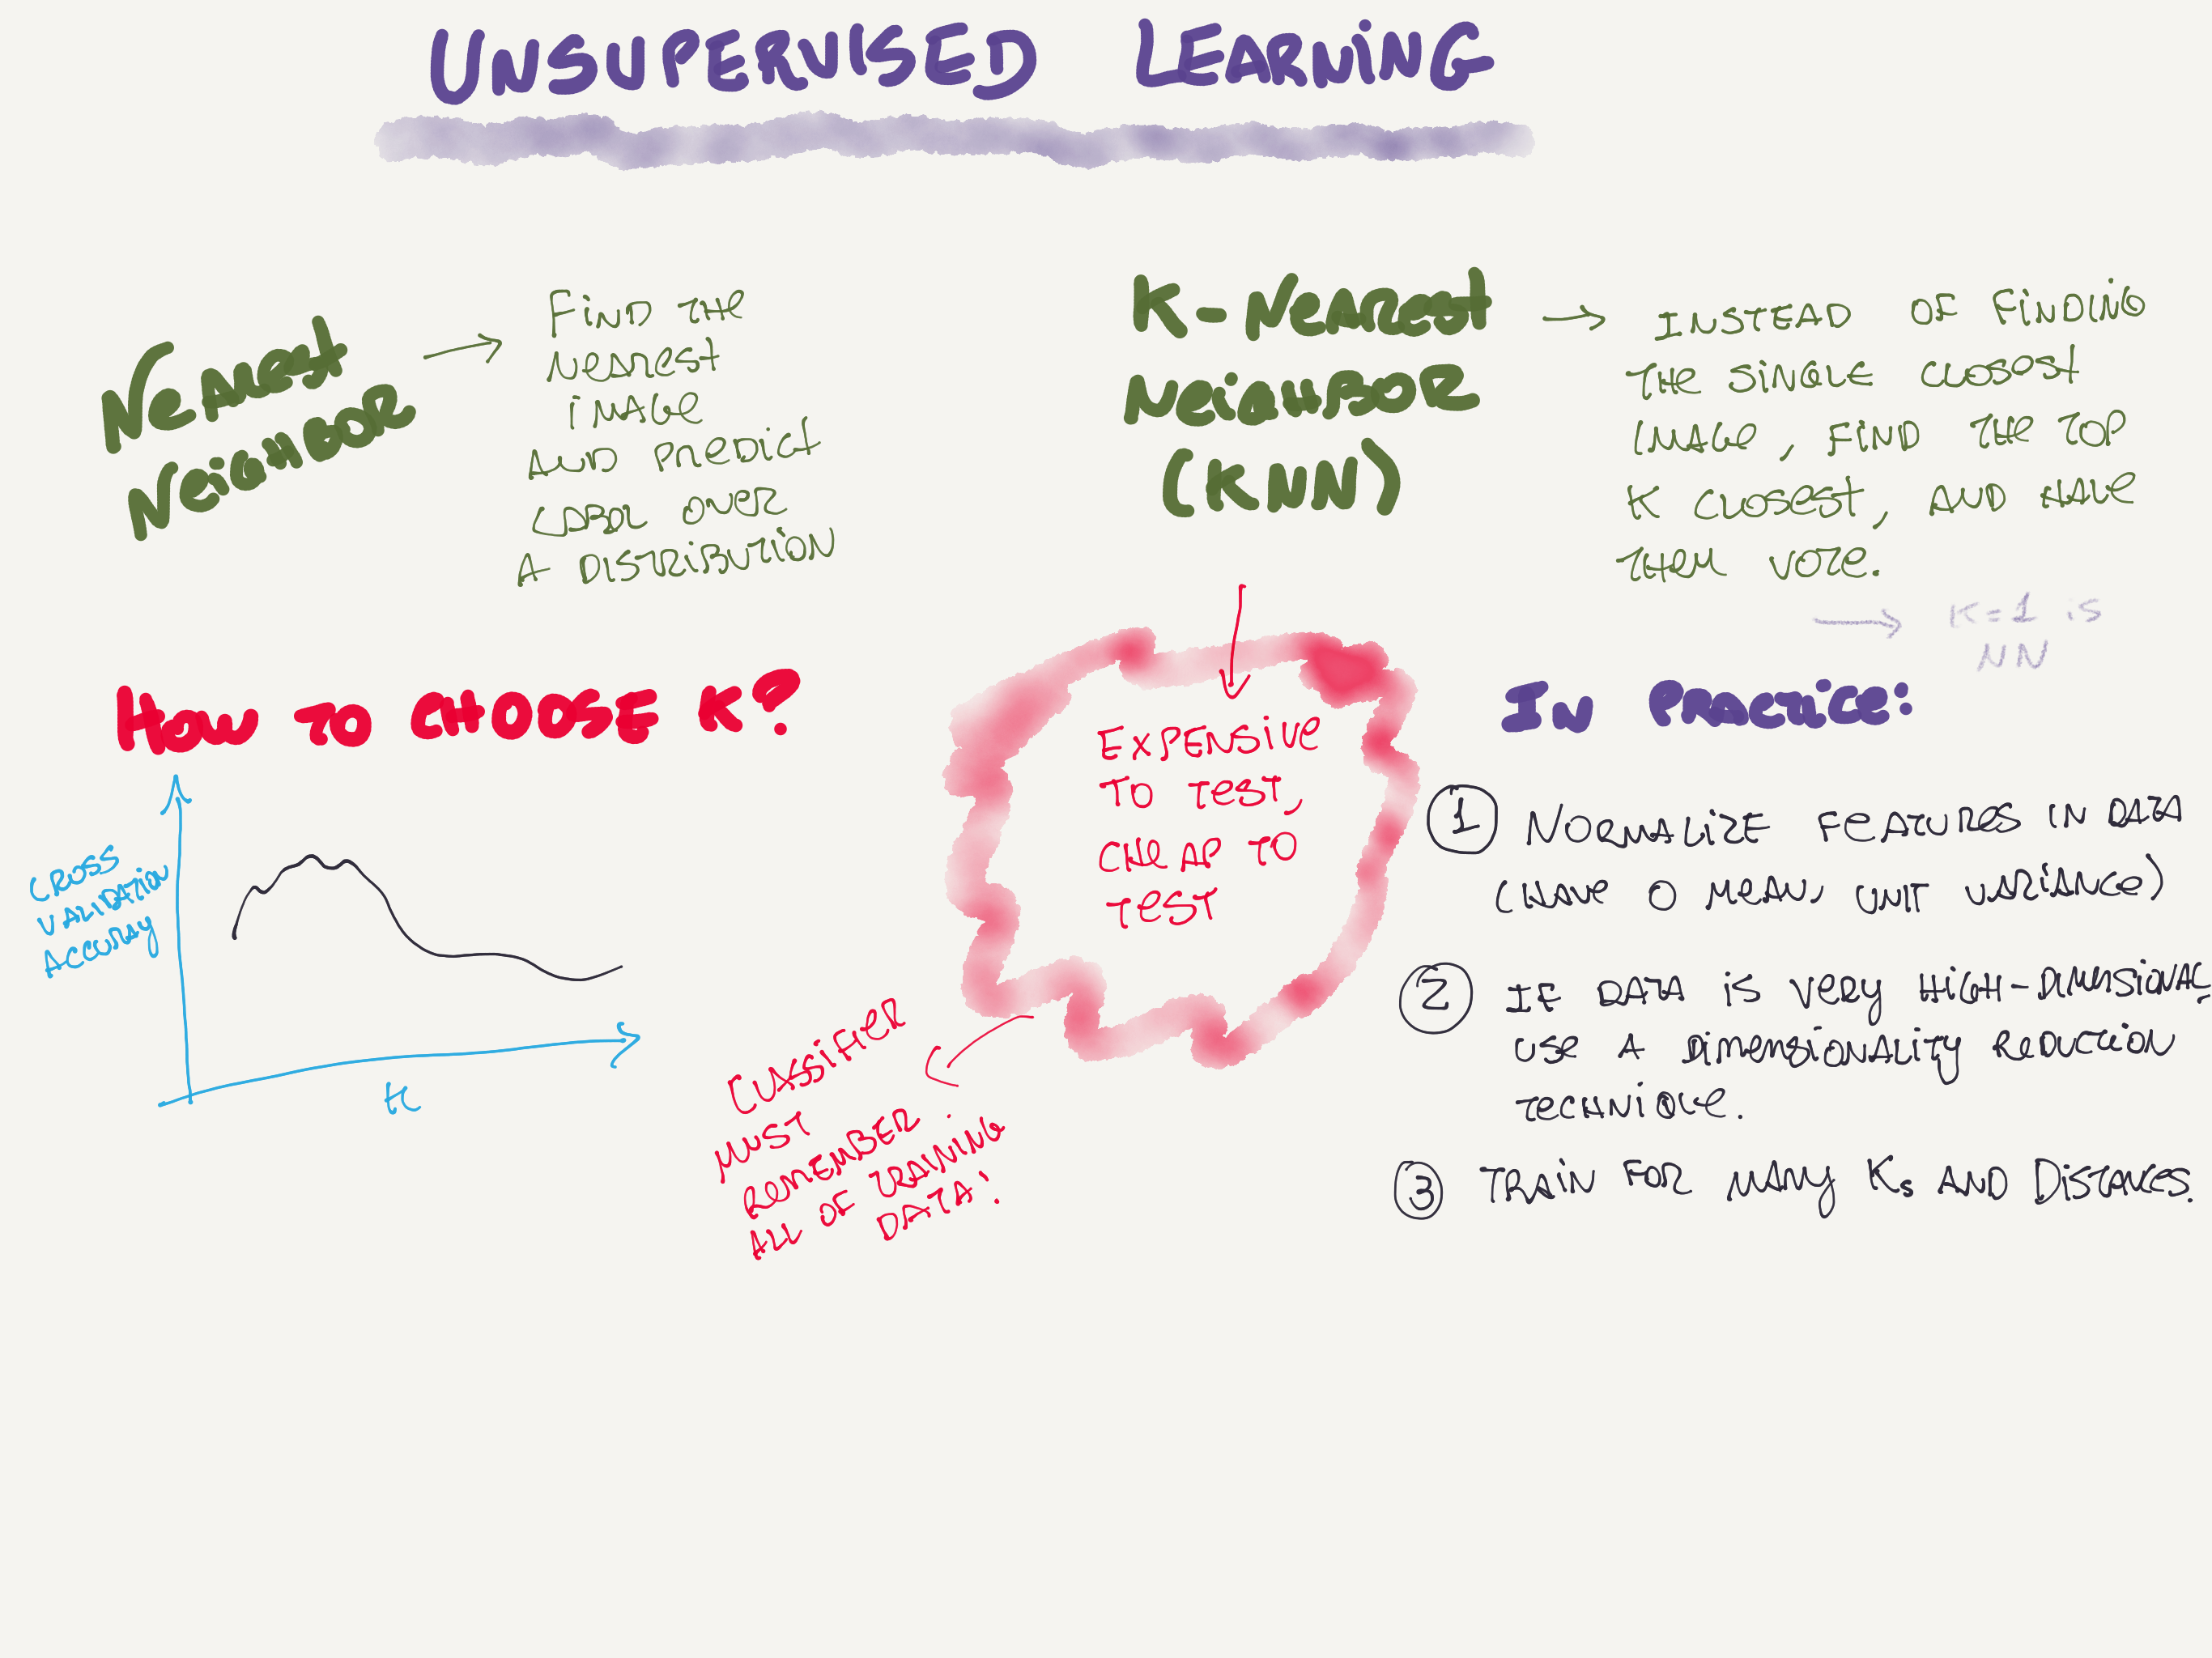 UNSUPERVISED LEARNING
NEAREST
NEIGHBOR
FIND THE
NEAREST
IMAGE
AND PREDICT
LABEL OVER
A DISTRIBUTION
K-NEAREST
NEIGHBOR
(KNN)
INSTEAD OF FINDING
THE SINGLE CLOSEST
IMAGE, FIND THE TOP
K CLOSEST, AND HAVE
THEM VOTE.
K=1 is
NN
HOW TO CHOOSE K?
CROSS
VALIDATION
ACCURAY
K
EXPENSIVE
TO TEST,
CHEAP TO
TEST
CLASSIFIER
MUST
REMEMBER
ALL OF TRAINING
DATA!
IN PRACTICE:
1 NORMALIZE FEATURES IN DATA
(HAVE 0 MEAN, UNIT VARIANCE)
2 IF DATA is VERY HIGH-DIMENSIONAL,
USE A DIMENSIONALITY REDUCTION
TECHNIQUE.
3 TRAIN FOR MANY Ks AND DISTANCES.